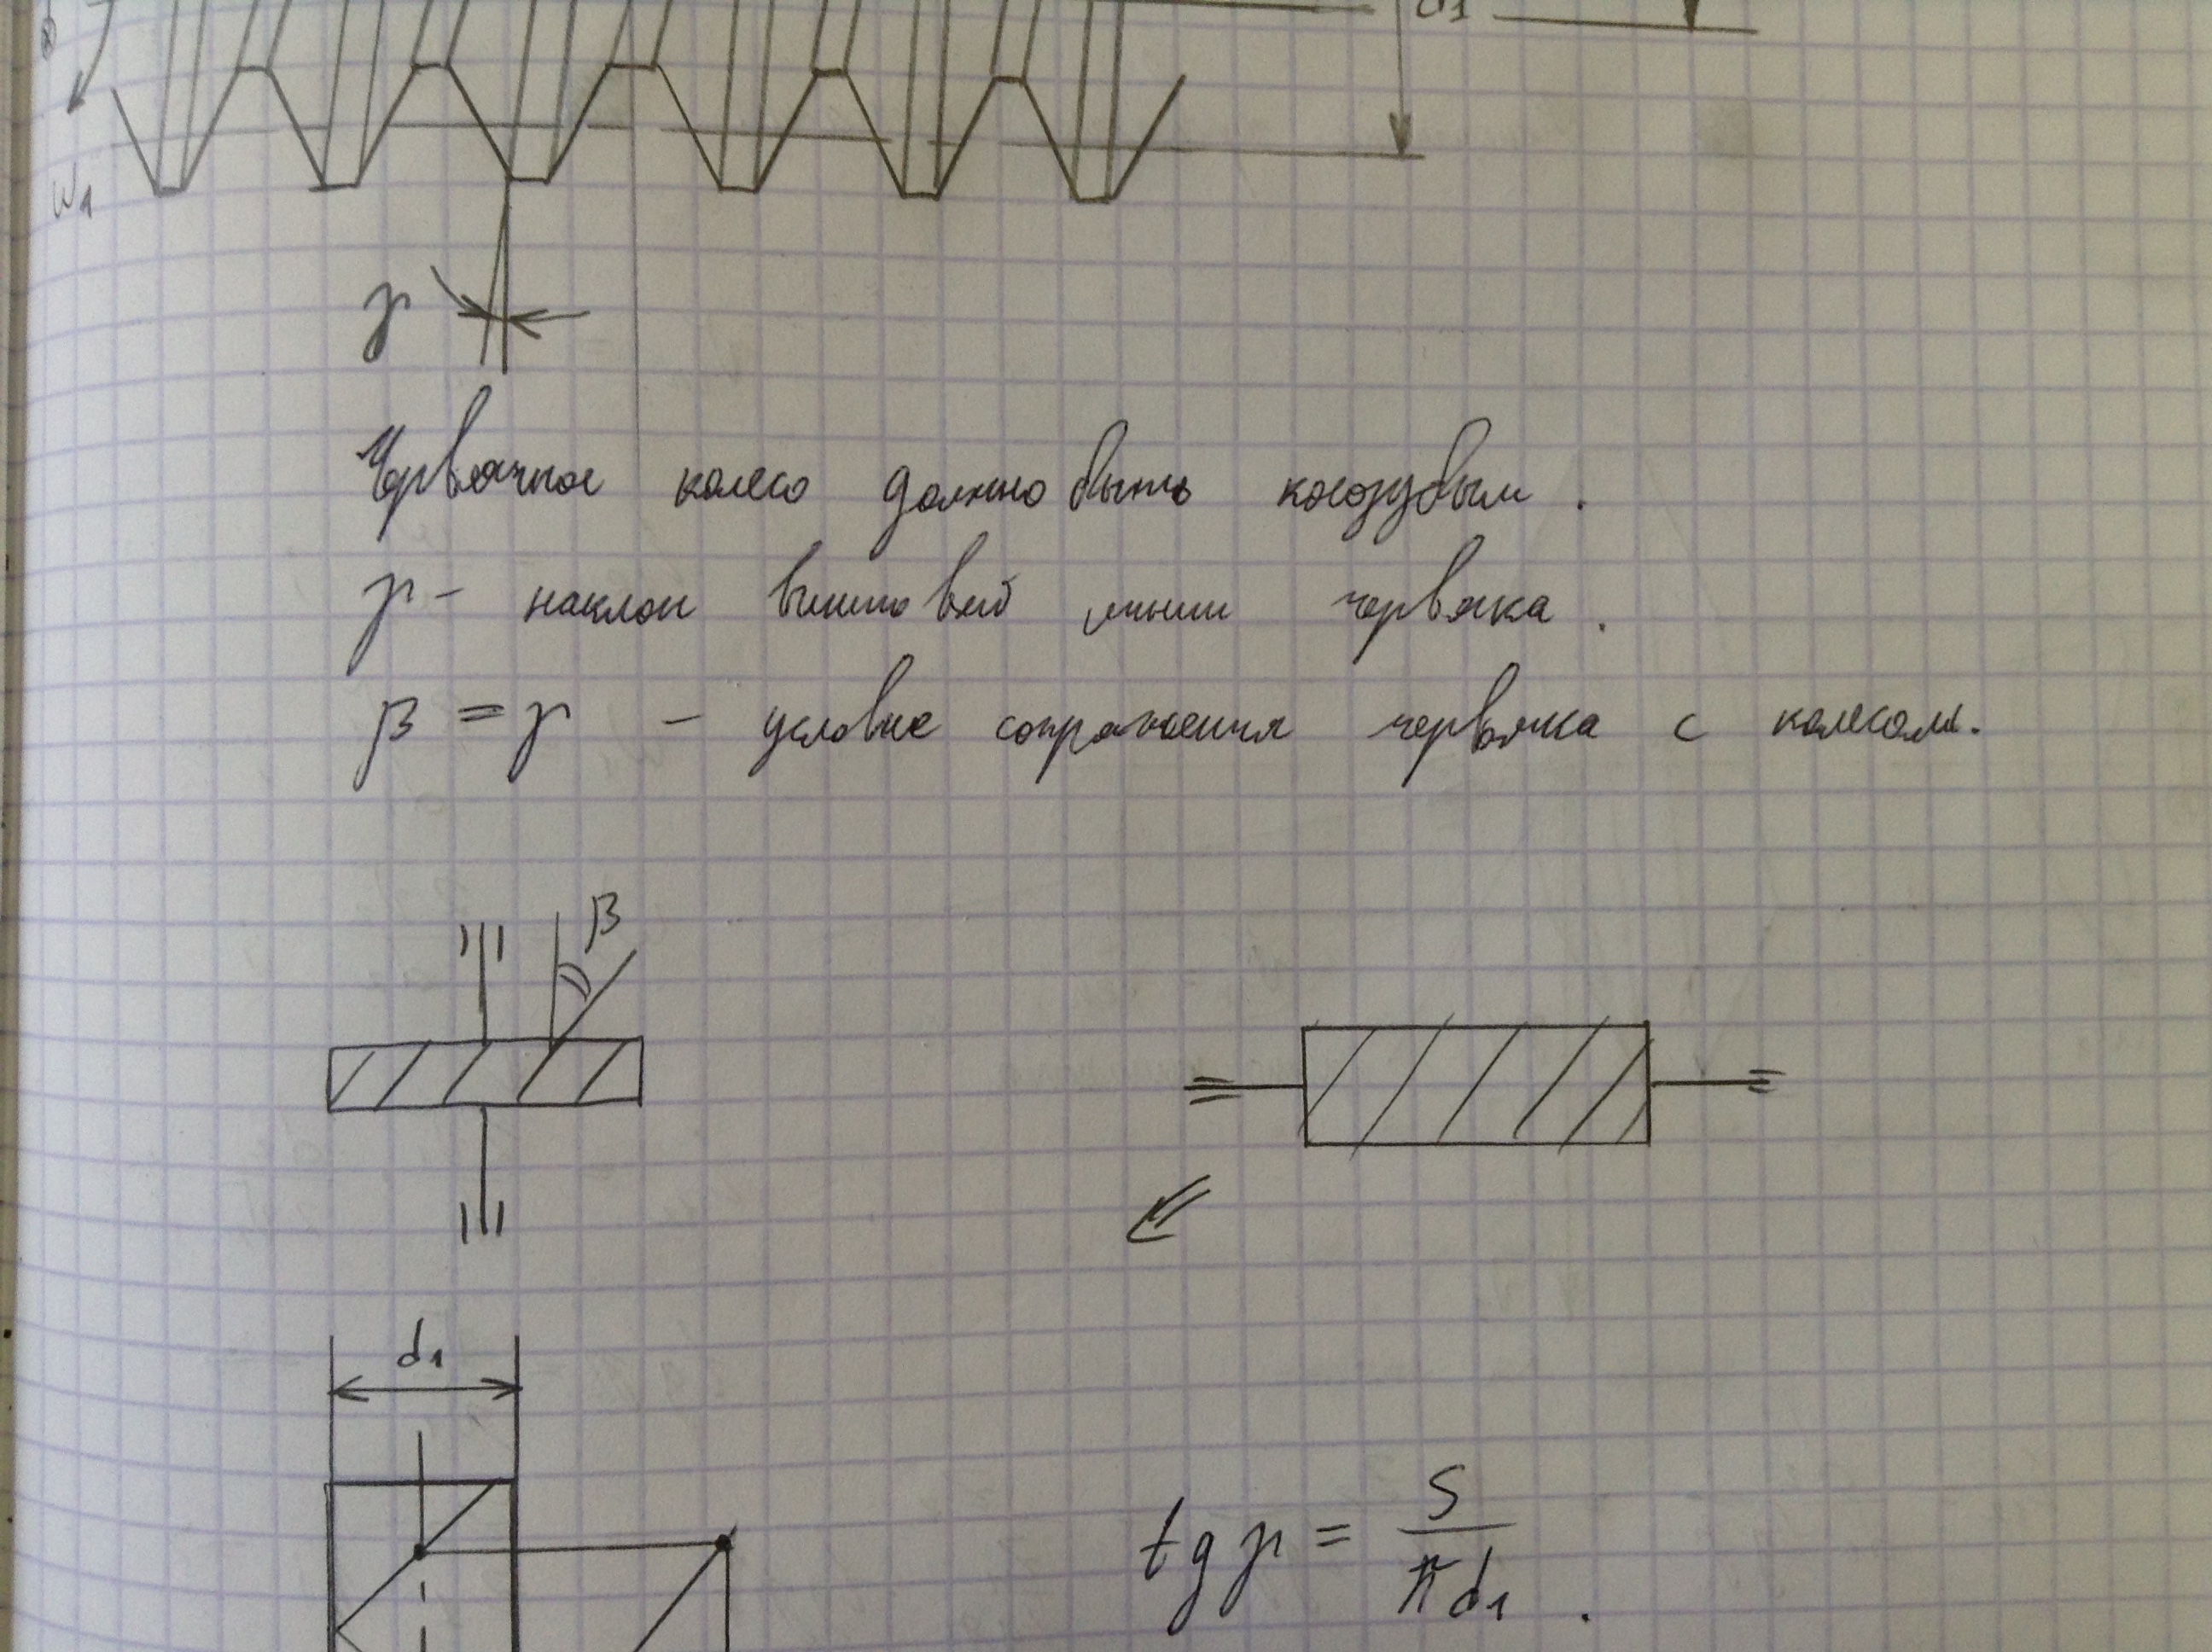 d1
ω1
γ
Червячное колесо должно быть косозубым.
γ - наклон винтовой линии червяка.
β = γ - условие сопряжения червяка с колесом.
β
d1
tg γ = S / πd1 .